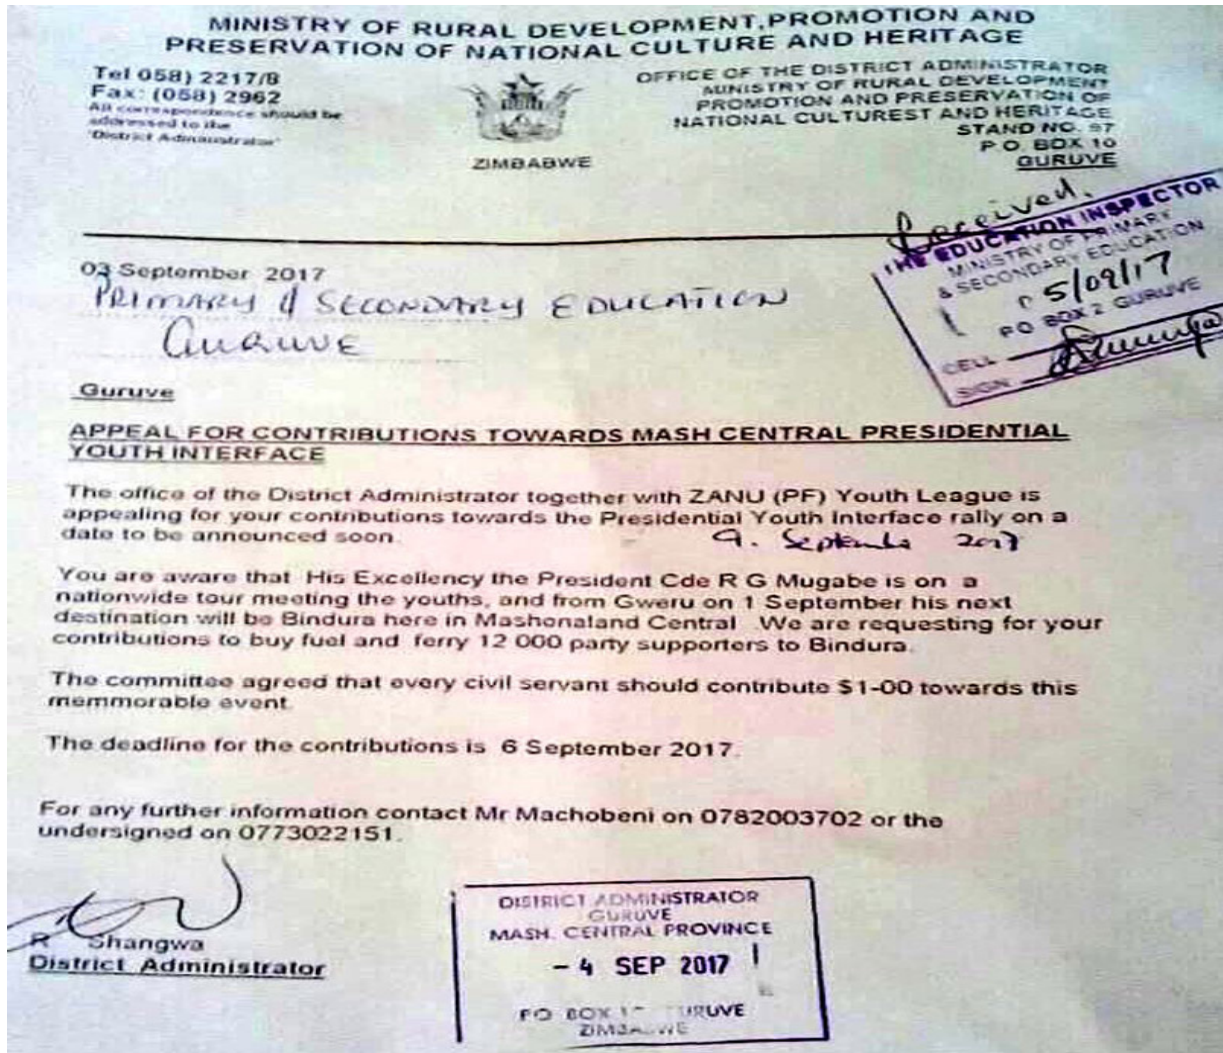 MINISTRY OF RURAL DEVELOPMENT,PROMOTION AND
PRESERVATION OF NATIONAL CULTURE AND HERITAGE
Tel 058) 2217/8
Fax: (058) 2962
All correspondence should be
addressed to the
'District Administrator'
ZIMBABWE
OFFICE OF THE DISTRICT ADMINISTRATOR
MINISTRY OF RURAL DEVELOPMENT
PROMOTION AND PRESERVATION OF
NATIONAL CULTUREST AND HERITAGE
STAND NO. 97
P O. BOX 10
GURUVE
Received.
THE EDUCATION INSPECTOR
MINISTRY OF PRIMARY
& SECONDARY EDUCATION
05/09/17
PO BOX 2 GURUVE
CELL
SIGN
03 September 2017
PRIMARY & SECONDARY EDUCATION
GURUVE
Guruve
APPEAL FOR CONTRIBUTIONS TOWARDS MASH CENTRAL PRESIDENTIAL
YOUTH INTERFACE
The office of the District Administrator together with ZANU (PF) Youth League is
appealing for your contributions towards the Presidential Youth Interface rally on a
date to be announced soon.
9. September 2017
You are aware that His Excellency the President Cde R G Mugabe is on a
nationwide tour meeting the youths, and from Gweru on 1 September his next
destination will be Bindura here in Mashonaland Central .We are requesting for your
contributions to buy fuel and ferry 12 000 party supporters to Bindura.
The committee agreed that every civil servant should contribute $1-00 towards this
memmorable event.
The deadline for the contributions is 6 September 2017.
For any further information contact Mr Machobeni on 0782003702 or the
undersigned on 0773022151.
R Shangwa
District Administrator
DISTRICT ADMINISTRATOR
GURUVE
MASH. CENTRAL PROVINCE
- 4 SEP 2017
PO BOX GURUVE
ZIMBABWE